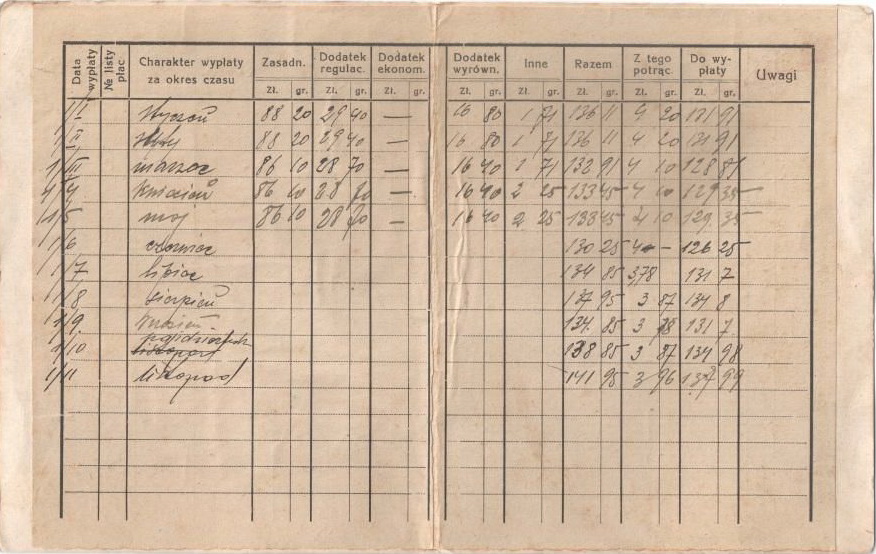 Data wypłaty № listy płac Charakter wypłaty za okres czasu Zasadn. Dodatek regulac. Dodatek ekonom. Dodatek wyrówn. Inne Razem Z tego potrąc. Do wypłaty Uwagi
Zł. gr. Zł. gr. Zł. gr. Zł. gr. Zł. gr. Zł. gr. Zł. gr. Zł. gr.
1/I styczeń 88 20 29 40 — 16 80 1 71 136 11 4 20 131 91
1/II luty 88 20 29 40 — 16 80 1 71 136 11 4 20 131 91
1/III marzec 86 10 28 70 — 16 40 1 71 132 91 4 10 128 81
1/4 kwiecień 86 10 28 70 — 16 40 2 25 133 45 4 10 129 35
1/5 maj 86 10 28 70 — 16 40 2 25 133 45 4 10 129. 35
1/6 czerwiec 130 25 4 — 126 25
1/7 lipiec 134 85 3,78 131 7
1/8 sierpień 137 95 3 87 134 8
1/9. 134. 85 3 78 131 7
październik
1/10 listopad 138 85 3 87 134 98
1/11 listopad 141 95 3 96 137 99